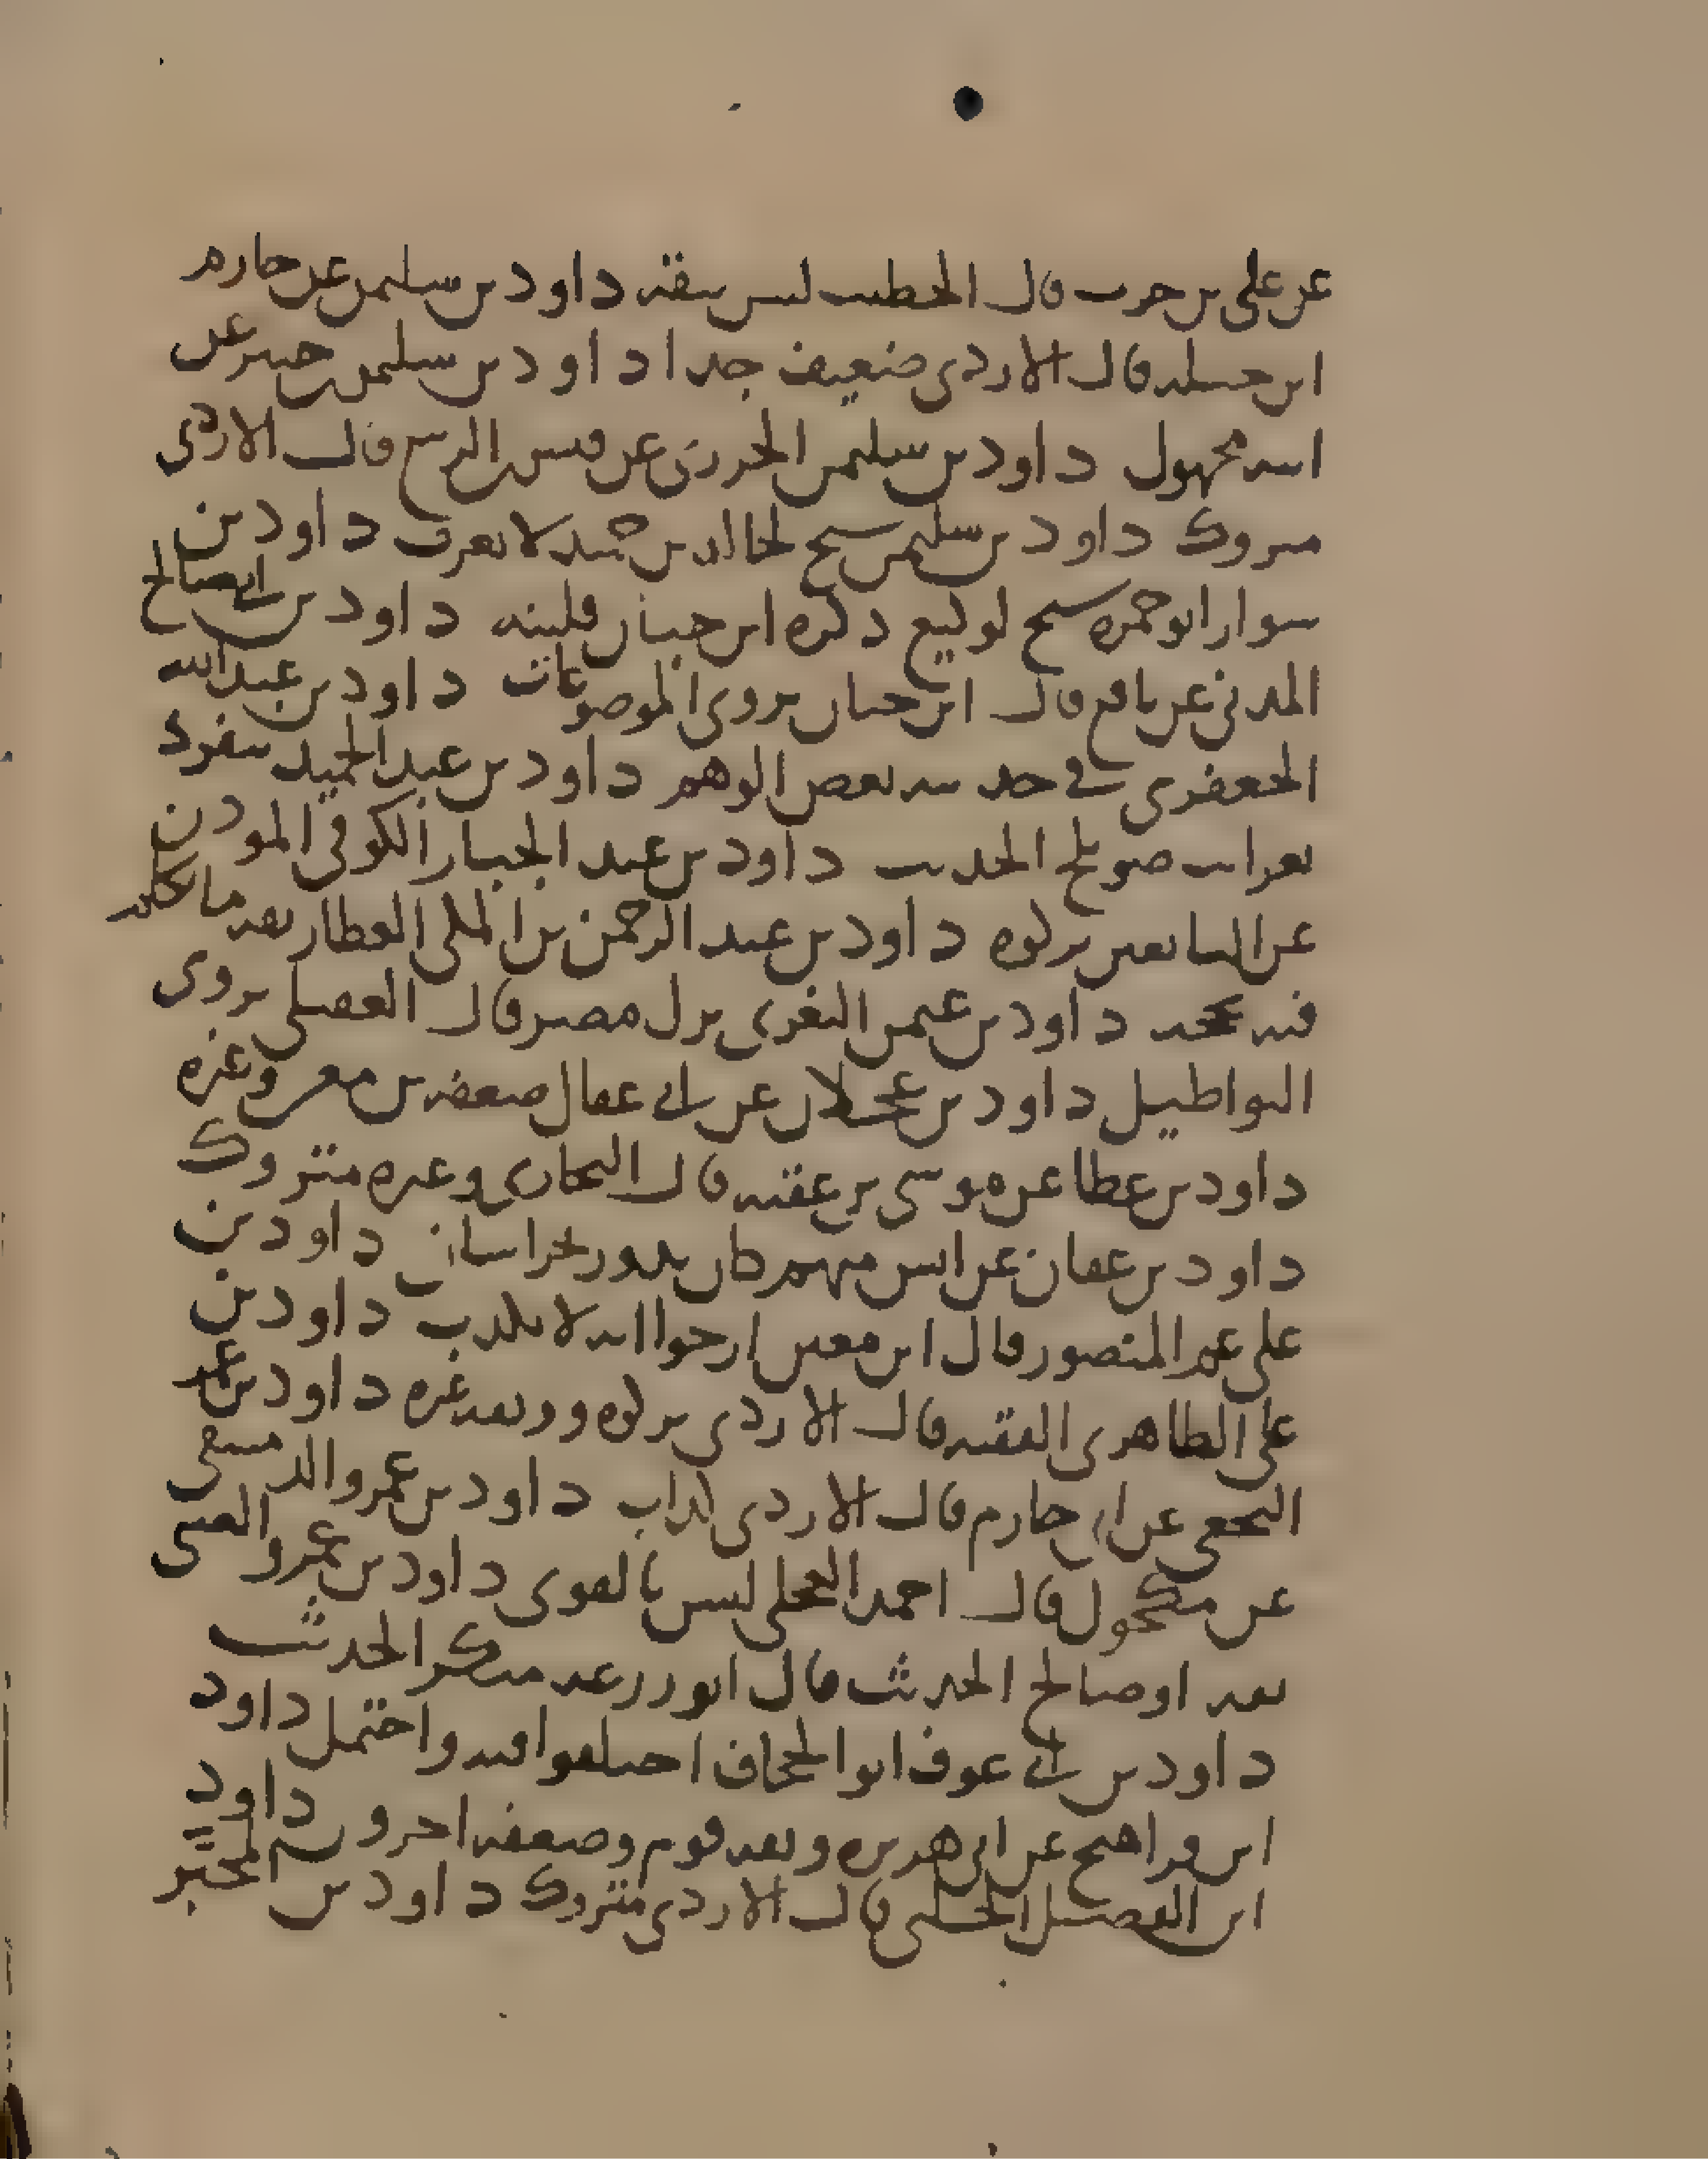 عن علي بن حرب قال الخطيب ليس بثقة داود بن سليمن عن حازم
ابن جبلة قال الازدي ضعيف جدا داود بن سليمن عن
ابيه مجهول داود بن سليمن الجزري عن قيس بن الربيع قال الازدي
متروك داود بن سليمن شيخ لخالد بن حميد لا يعرف داود بن
سوار ابو حمزة شيخ لوكيع ذكره ابن حبان فلينه داود بن ابي صالح
المدني عن نافع قال ابن حبان يروي الموضوعات داود بن عبد الله
الجعفري في حديثه بعض الوهم داود بن عبد الحميد ينفرد
صويلح الحديث داود بن عبد الجبار الكوفي الموذن
عن التابعين تركوه داود بن عبد الرحمن المكي العطار ثقة ما تكلم
فيه داود بن عثمن الثغري نزل مصر قال العقيلي يروي
البواطيل داود بن عجلان عن ابي عقال ضعفه بن معين وغيره
داود بن عطا عن موسى بن عقبة قال البخاري وغيره متروك
داود بن عفان عن انس متهم كان يدور بخراسان داود بن
علي عم المنصور قال ابن معين ارجوا انه لا يكذب داود بن
علي الظاهري الفقيه قال الازدي تركوه ووثقه غيره داود بن
النخعي عن ابي حازم قال الازدي كذاب داود بن عمرو الدمشقي
عن مكحول قال احمد العجلي ليس بالقوي داود بن عمرو الضبي
ثقة او صالح الحديث قال ابو زرعة منكر الحديث
داود بن ابي عوف ابو الجحاف اختلفوا فيه واحتمل داود
ابن فراهيج عن ابي هريرة وثقه قوم وضعفه اخرون داود
ابن الفضل الحلبي قال الازدي متروك داود بن المحبر